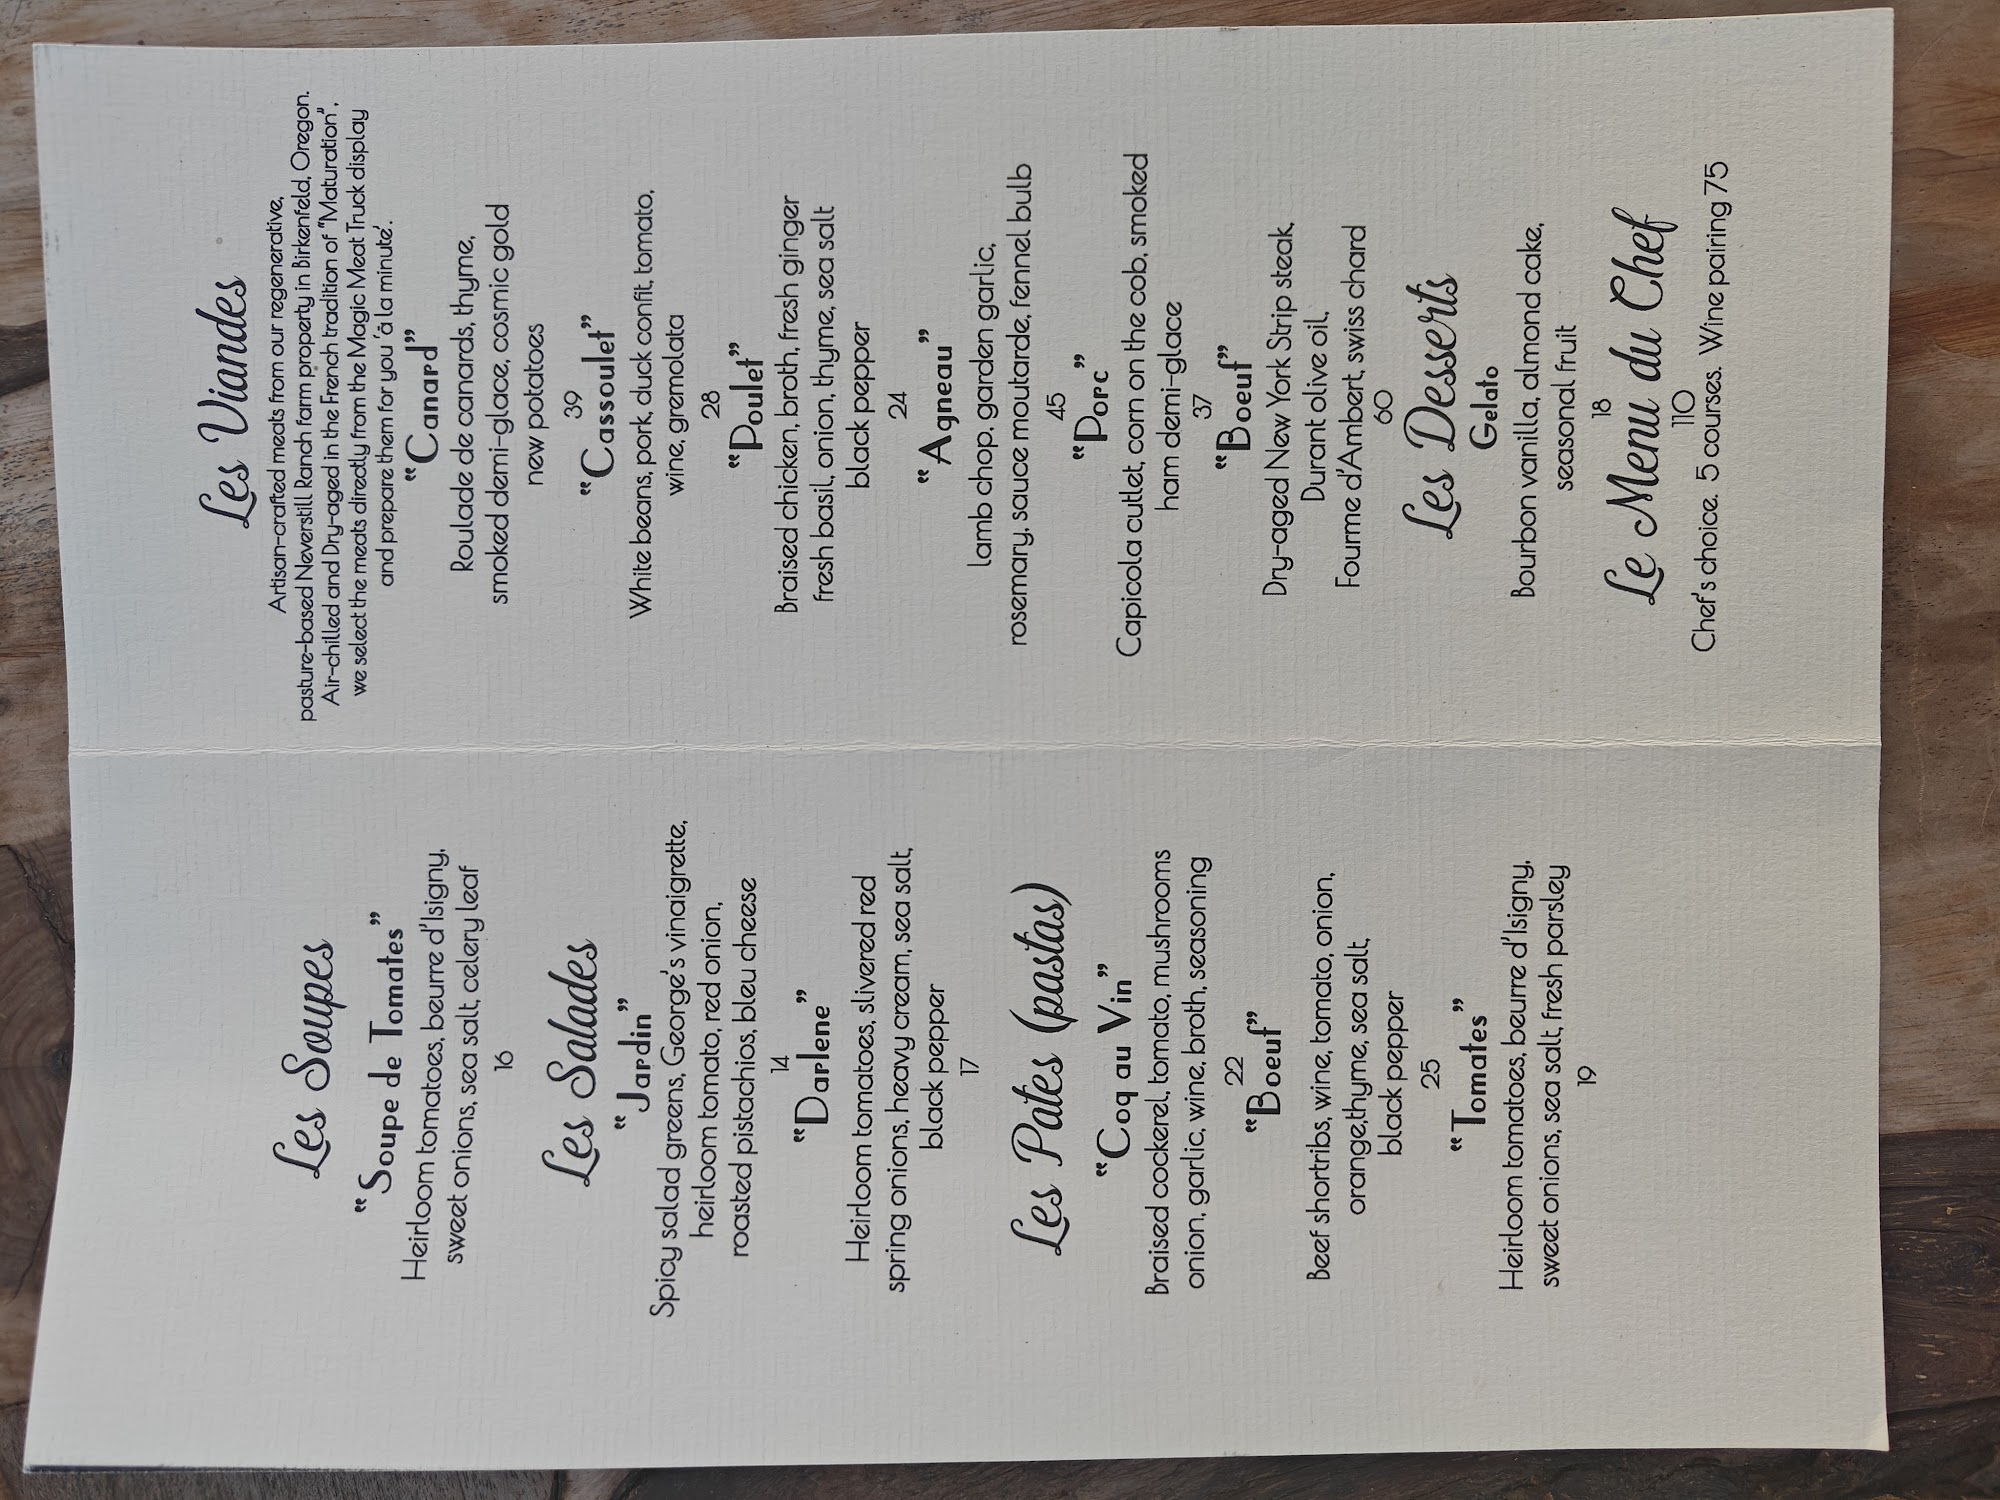 Les Soupes
"Soupe de Tomates"
Heirloom tomatoes, beurre d'Isigny,
sweet onions, sea salt, celery leaf
16
Les Salades
"Jardin"
Spicy salad greens, George's vinaigrette,
heirloom tomato, red onion,
roasted pistachios, bleu cheese
14
"Darlene"
Heirloom tomatoes, slivered red
spring onions, heavy cream, sea salt,
black pepper
17
Les Pates (pastas)
"Coq au Vin"
Braised cockerel, tomato, mushrooms
onion, garlic, wine, broth, seasoning
22
"Boeuf"
Beef shortribs, wine, tomato, onion,
orange,thyme, sea salt,
black pepper
25
"Tomates"
Heirloom tomatoes, beurre d'Isigny,
sweet onions, sea salt, fresh parsley
19
Les Viandes
Artisan-crafted meats from our regenerative,
pasture-based Neverstill Ranch farm property in Birkenfeld, Oregon.
Air-chilled and Dry-aged in the French tradition of "Maturation",
we select the meats directly from the Magic Meat Truck display
and prepare them for you 'á la minute'.
"Canard"
Roulade de canards, thyme,
smoked demi-glace, cosmic gold
new potatoes
39
"Cassoulet"
White beans, pork, duck confit, tomato,
wine, gremolata
28
"Poulet"
Braised chicken, broth, fresh ginger
fresh basil, onion, thyme, sea salt
black pepper
24
"Agneau"
lamb chop, garden garlic,
rosemary, sauce moutarde, fennel bulb
45
"Porc"
Capicola cutlet, corn on the cob, smoked
ham demi-glace
37
"Boeuf"
Dry-aged New York Strip steak,
Durant olive oil,
Fourme d'Ambert, swiss chard
60
Les Desserts
Gelato
Bourbon vanilla, almond cake,
seasonal fruit
18
Le Menu du Chef
110
Chef's choice. 5 courses. Wine pairing 75